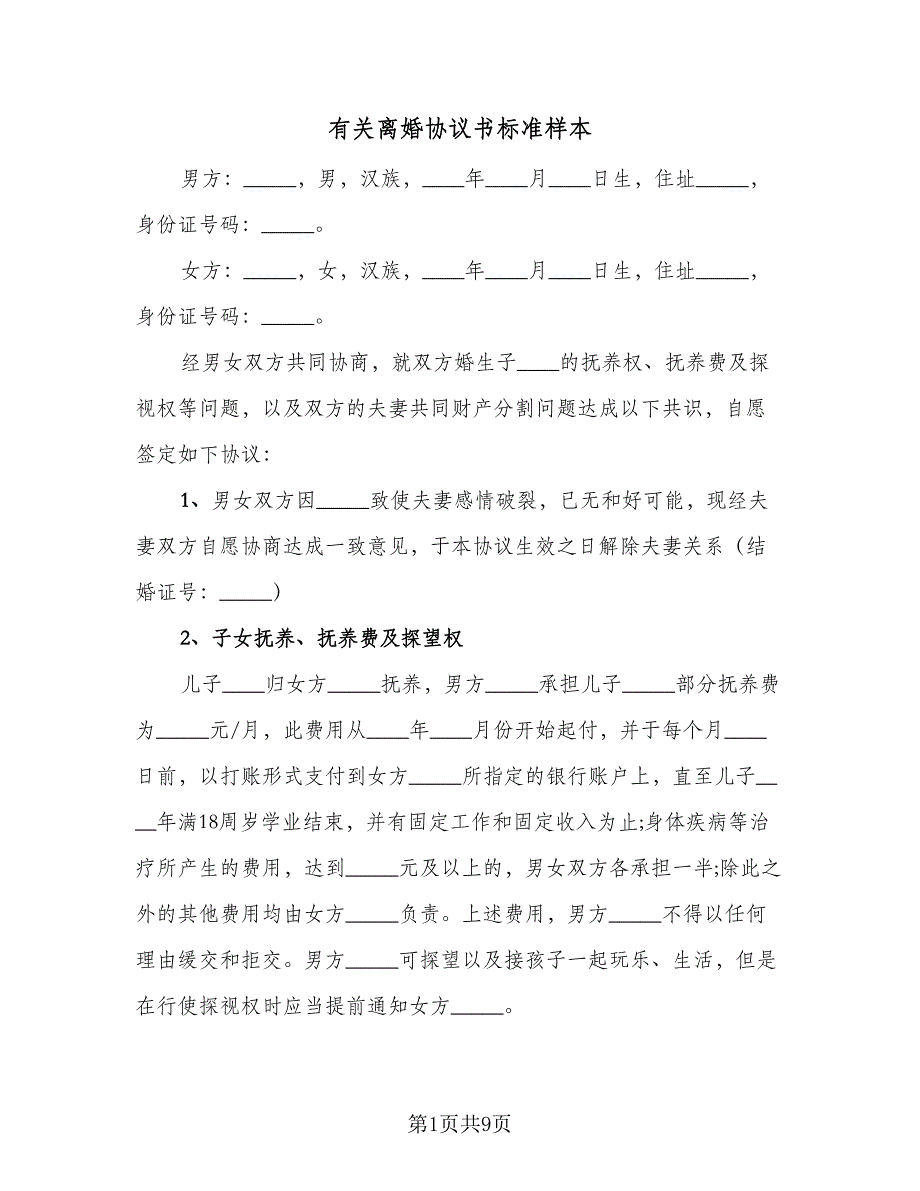 有关离婚协议书标准样本
男方：_____，男，汉族，____年____月____日生，住址_____，
身份证号码：_____。
女方：_____，女，汉族，____年____月____日生，住址_____，
身份证号码：_____。
经男女双方共同协商，就双方婚生子____的抚养权、抚养费及探
视权等问题，以及双方的夫妻共同财产分割问题达成以下共识，自愿
签定如下协议：
1、男女双方因_____致使夫妻感情破裂，已无和好可能，现经夫
妻双方自愿协商达成一致意见，于本协议生效之日解除夫妻关系（结
婚证号：_____）
2、子女抚养、抚养费及探望权
儿子____归女方_____抚养，男方_____承担儿子_____部分抚养费
为_____元/月，此费用从____年____月份开始起付，并于每个月____
日前，以打账形式支付到女方_____所指定的银行账户上，直至儿子__
__年满18周岁学业结束，并有固定工作和固定收入为止;身体疾病等治
疗所产生的费用，达到_____元及以上的，男女双方各承担一半;除此之
外的其他费用均由女方_____负责。上述费用，男方_____不得以任何
理由缓交和拒交。男方_____可探望以及接孩子一起玩乐、生活，但是
在行使探视权时应当提前通知女方_____。
第1页共9页